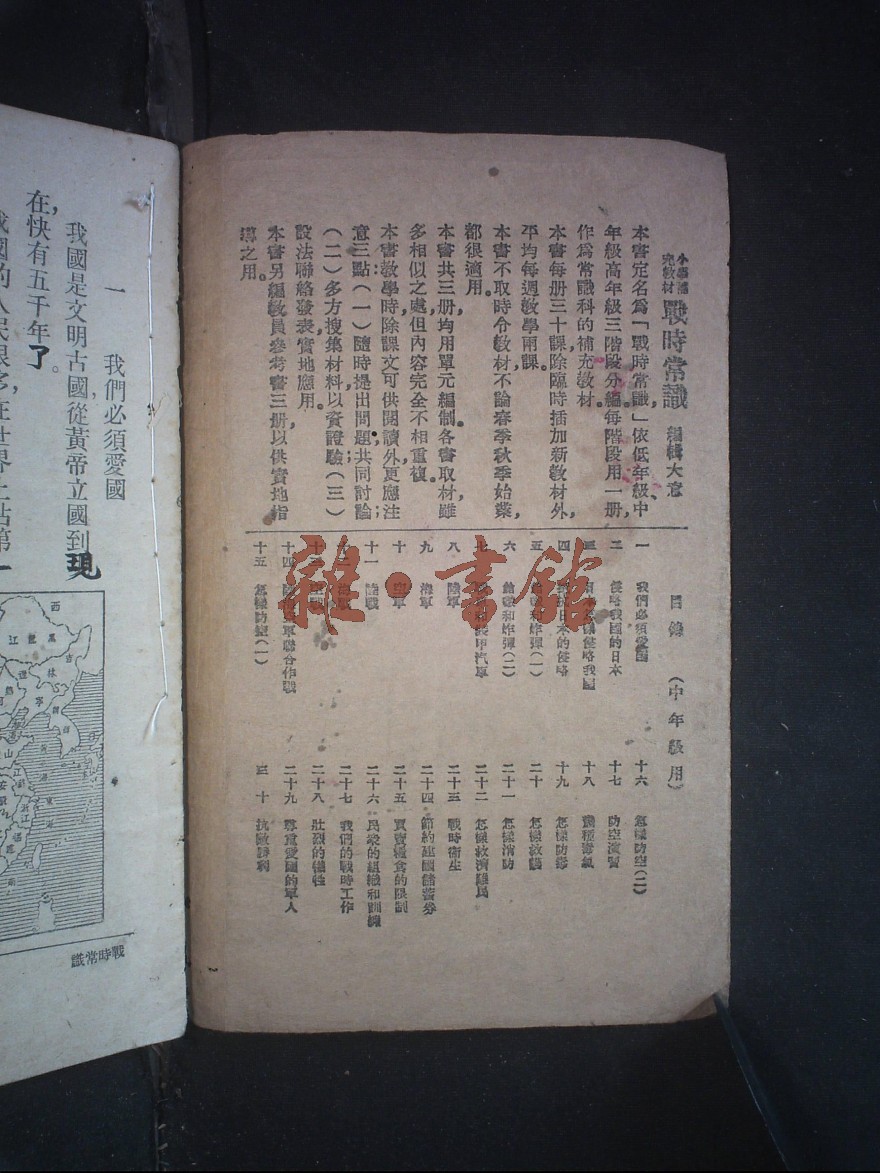 小學補充教材
戰時常識 編輯大意
本書定名爲「戰時常識」依低年級、中
年級高年級三階段分編每階段用一册,
作爲常識科的補充教材。
本書每册三十課除臨時插加新教材外,
平均每週教學兩課。
本書不取時令教材不論春季秋季始業,
都很適用。
本書共三册均用單元編制。各書取材雖
多相似之處但內容完全不相重複。
本書教學時除課文可供閱讀外更應注
意三點(一)隨時提出問題共同討論;
(二)多方搜集材料以資證驗(三)
設法聯絡發表實地應用。
本書另編教員參考書三册以供實地指
導之用。
目錄 (中年級用)
一 我們必須愛國
二 侵略我國的日本
三 侵略我國
四 日本的侵略
五 槍礮和炸彈(一)
六 槍礮和炸彈(二)
七 裝甲汽車
八 陸軍
九 海軍
十 空軍
十一 陸戰
十二
十三
十四 軍聯合作戰
十五 怎樣防空(一)
十六 怎樣防空(二)
十七 防空演習
十八 幾種毒氣
十九 怎樣防毒
二十 怎樣救護
二十一 怎樣消防
二十二 怎樣救濟難民
二十三 戰時衛生
二十四 節約建國儲蓄券
二十五 買賣糧食的限制
二十六 民衆的組織和訓練
二十七 我們的戰時工作
二十八 壯烈的犧牲
二十九 尊重愛國的軍人
三十 抗敵勝利
雜·書館
一 我們必須愛國
我國是文明古國,從黃帝立國到現
在,快有五千年了。
我國的人民很多,在世界上佔第一
西
黑龍江
吉林
遼寧
熱河
朝鮮
山
江蘇
安徽
浙江
福
南
戰時常識